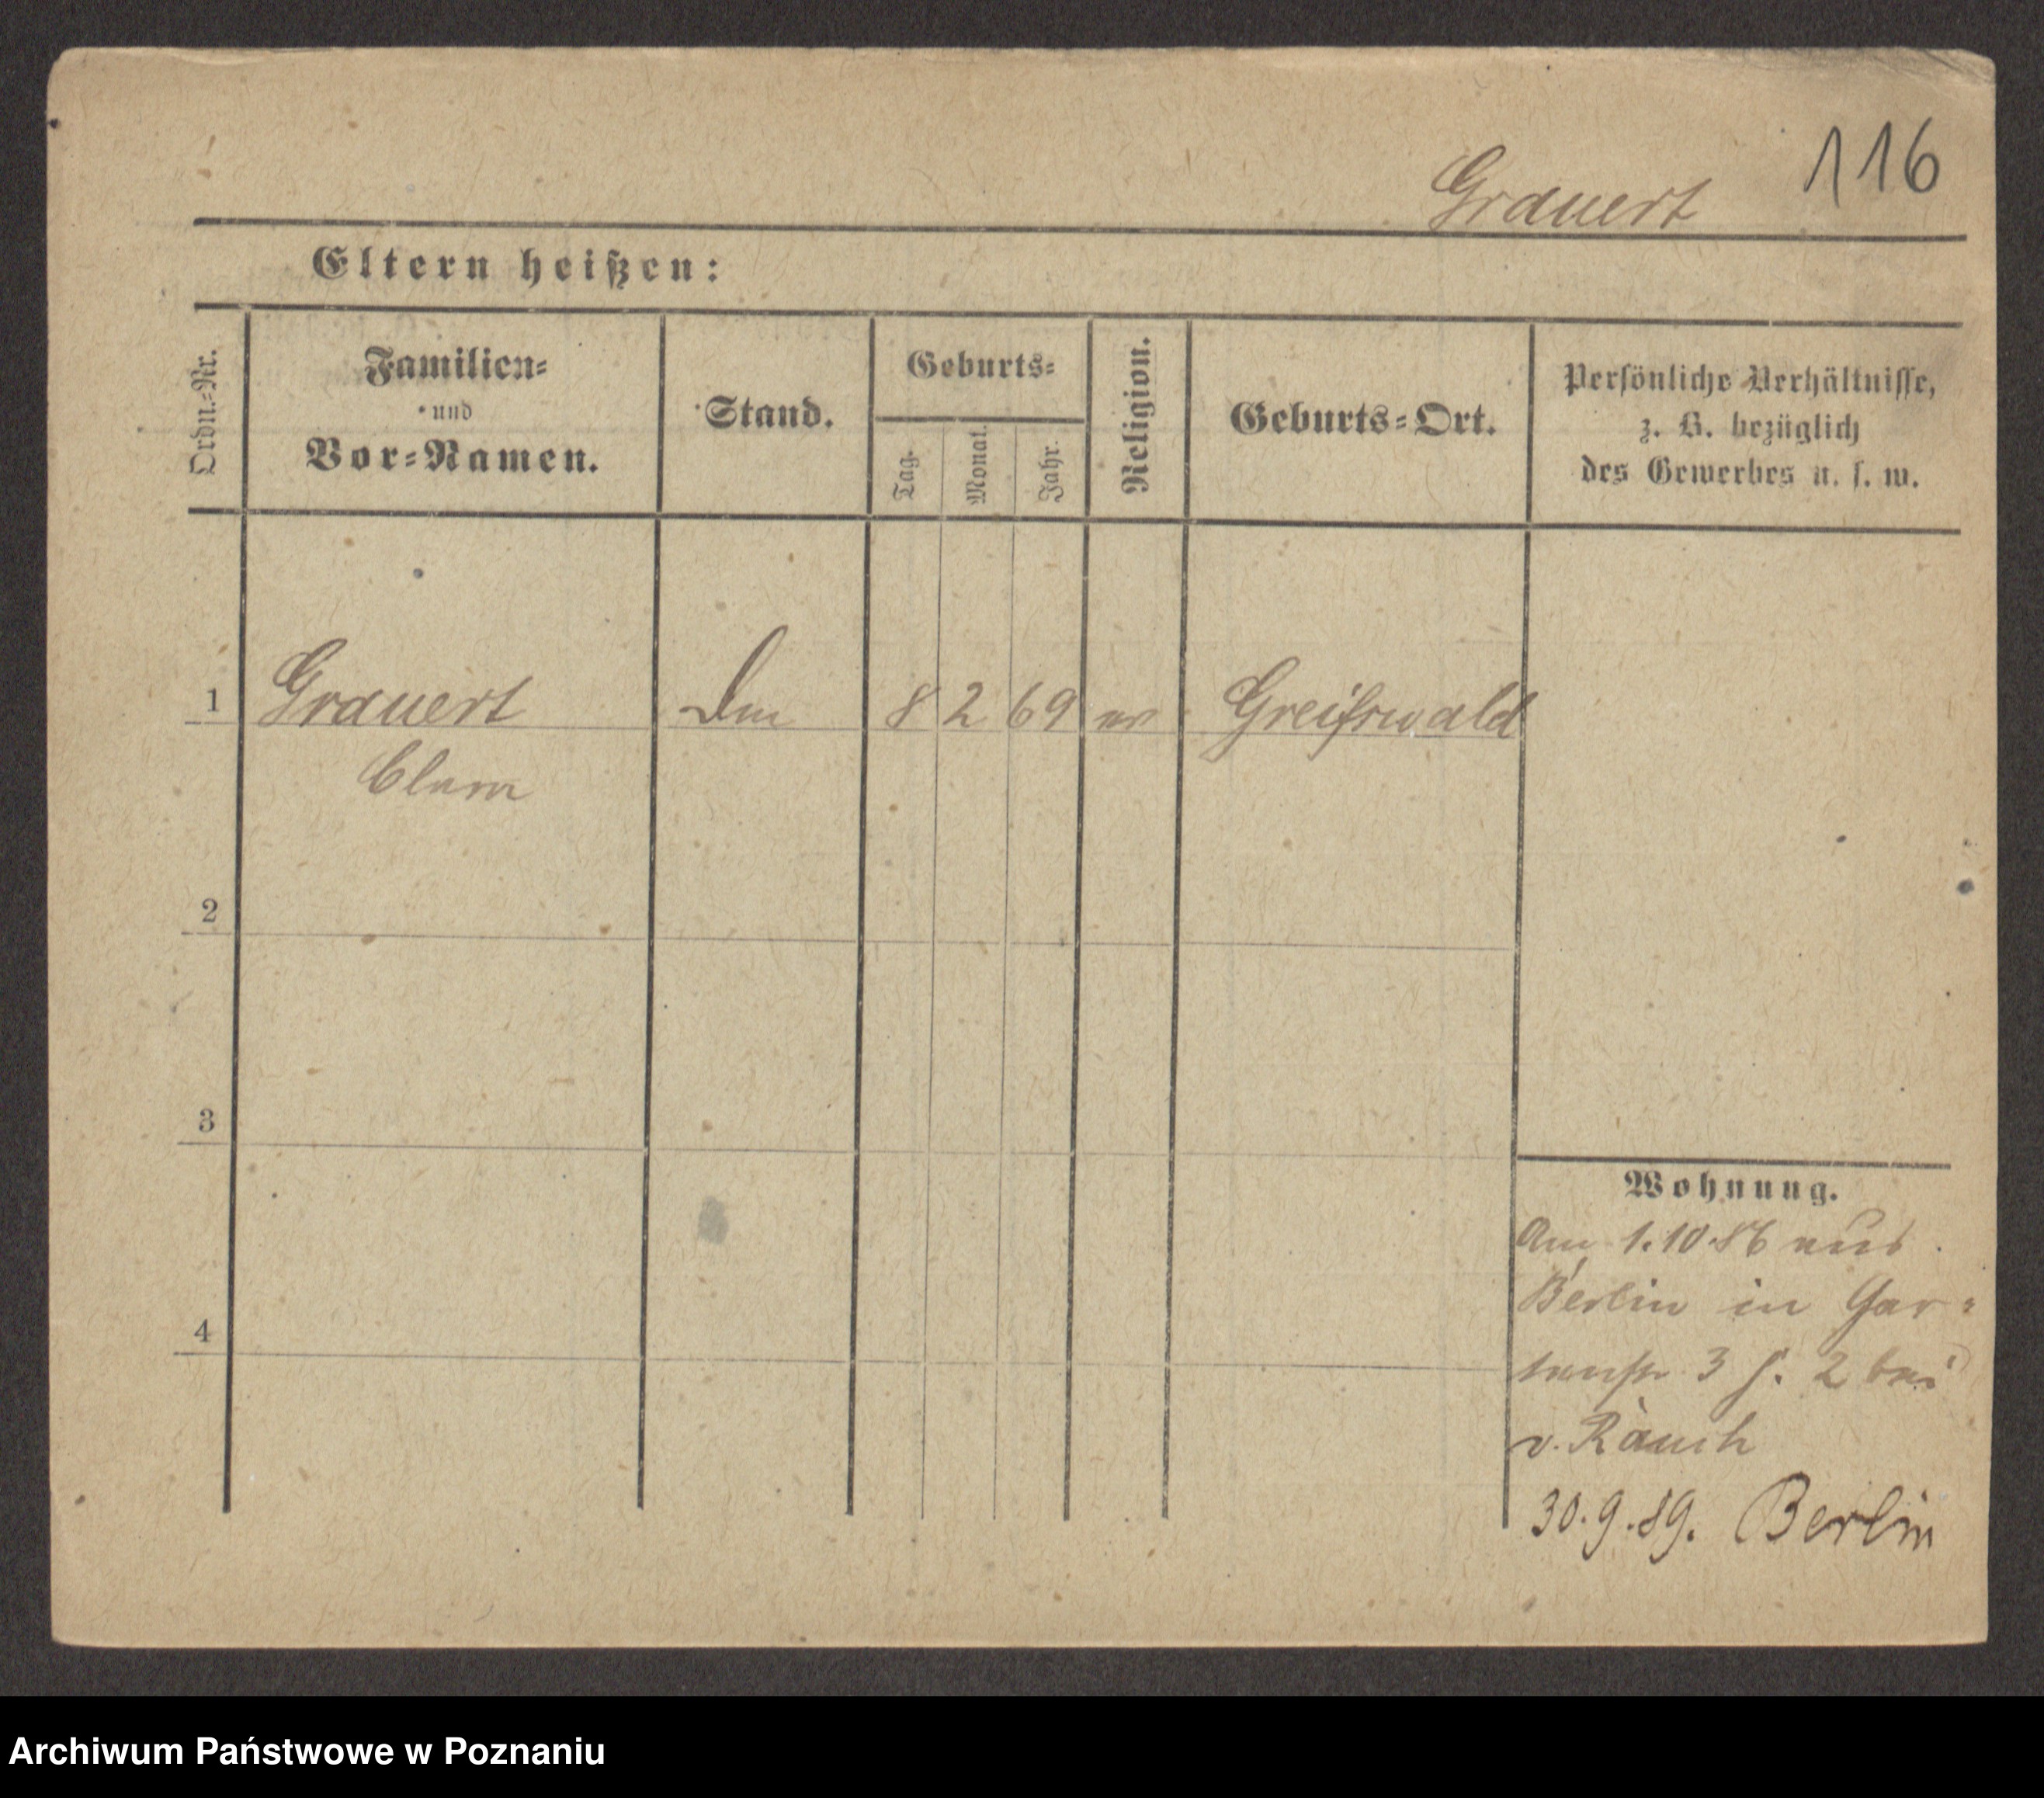 116
Grauert
Eltern heißen:
Ordn.-Nr.
Familien-
und
Vor-Namen.
Stand.
Geburts-
Tag.
Monat.
Jahr.
Religion.
Geburts-Ort.
Persönliche Verhältnisse,
z. B. bezüglich
des Gewerbes u. s. w.
1 Grauert 8 2 69 ev Greifswald
Clara
2
3
4
Wohnung.
Am 1.10.86 aus
Berlin in Gar-
tenstr 3 2 bei
v. Rauch
30.9.89. Berlin
Archiwum Państwowe w Poznaniu